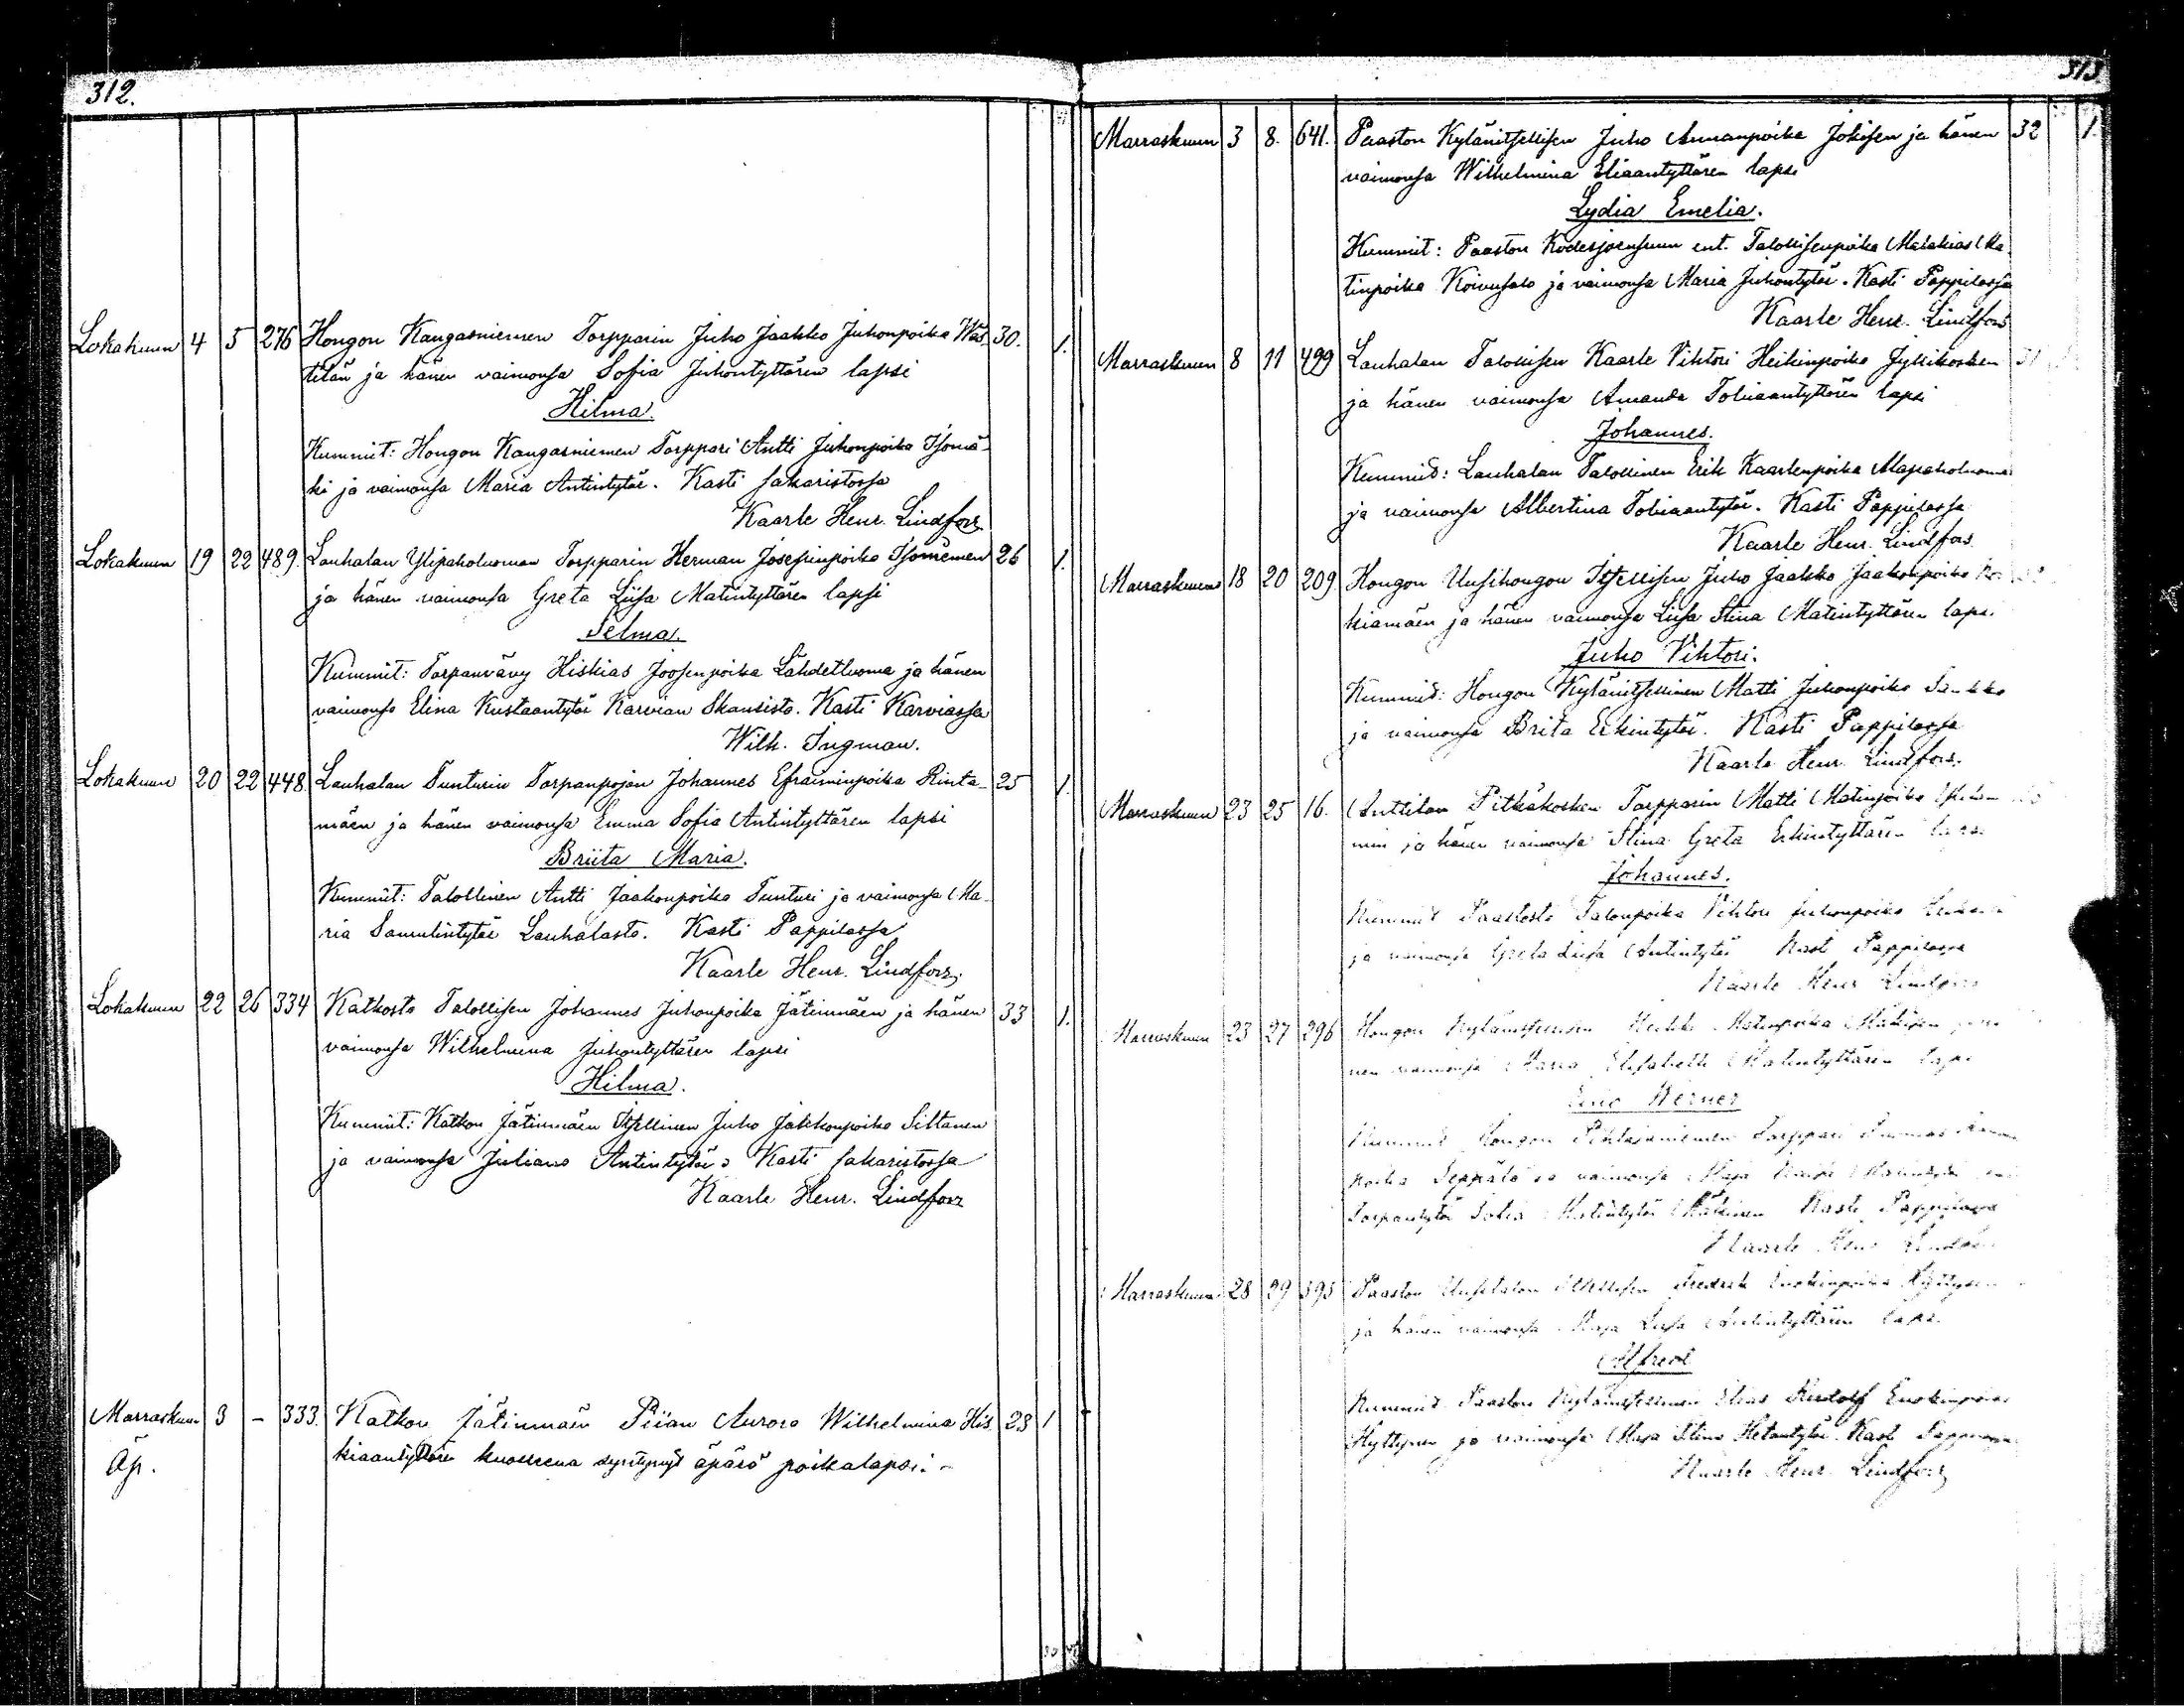 312.
Lokakuun 4 5 276 Hongon Kangasniemen Torpparin Juho Jaakko Juhonpoika Wäs- 30. 1.
tilän ja hänen vaimonsa Sofia Juhontyttären lapsi
Hilma.
Kummit: Hongon Kangasniemen Torppari Antti Juhonpoika Isomä-
ki ja vaimonsa Maria Antintytär. Kasti sakaristossa
Kaarle Henr. Lindfors
Lokakuun 19 22 489. Lauhalan Ylipaholuoman Torpparin Herman Josefinpoika Isoniemen 26 1.
ja hänen vaimonsa Greta Liisa Matintyttären lapsi
Selma.
Kummit: Torpanvävy Hiskias Joosenpoika Lähdetluoma ja hänen
vaimonsa Elina Kustaantytär Karvian Skansista. Kasti Karviassa
Wilh. Ingman.
Lokakuun 20 22 448. Lauhalan Tunturin Torpanpojan Johannes Efraiminpoika Rinta- 25 1.
mäen ja hänen vaimonsa Emma Sofia Antintyttären lapsi
Briita Maria.
Kummit: Talollinen Antti Jaakonpoika Tunturi ja vaimonsa Ma-
ria Samulintytär Lauhalasta. Kasti Pappilassa
Kaarle Henr. Lindfors.
Lokakuun 22 26 334 Katkosta Talollisen Johannes Juhonpoika Jätinmäen ja hänen 33 1.
vaimonsa Wilhelmina Juhontyttären lapsi
Hilma.
Kummit: Katkon Jätinmäen Itsellinen Juho Jakkonpoika Siltanen
ja vaimonsa Juliana Antintytär. Kasti sakaristossa
Kaarle Henr. Lindfors
Marraskuun 3 – 333. Katkon Jätinmäen Piian Aurora Wilhelmina His- 23 1
Äp. kiaantyttären kuolleena syntynyt äpärä poikalapsi. –
313.
Marraskuun 3 8. 641. Paaston Kylänitsellisen Juho Annanpoika Jokisen ja hänen 32 1.
vaimonsa Wilhelmina Eliaantyttären lapsi
Lydia Emelia.
Kummit: Paaston Kodesjoensuun ent. Talollisenpoika Malakias Ma-
tinpoika Koivusalo ja vaimonsa Maria Juhontytär. Kasti Pappilassa
Kaarle Henr. Lindfors
Marraskuun 8 11 499 Lauhalan Talollisen Kaarle Vihtori Heikinpoika Jyllikosken 31
ja hänen vaimonsa Amanda Tobiaantyttären lapsi
Johannes.
Kummit: Lauhalan Talollinen Erik Kaarlenpoika Alapaholuoma
ja vaimonsa Albertina Tobiaantytär. Kasti Pappilassa
Kaarle Henr. Lindfors
Marraskuun 18 20 209. Hongon Uusihongon Itsellisen Juho Jaakko Jaakonpoika
kiamäen ja hänen vaimonsa Liisa Stina Matintyttären lapsi
Juho Vihtori.
Kummit: Hongon Kylänitsellinen Matti Juhonpoika
ja vaimonsa Brita Erkintytär. Kasti Pappilassa
Kaarle Henr. Lindfors.
Marraskuun 23 25 16. Anttilan Pitkäkosken Torpparin Matti Matinpoika
ja hänen vaimonsa Stina Greta Erkintyttären lapsi
Johannes.
Kummit Paastosta Talonpoika Vihtori Juhonpoika
ja vaimonsa Greta Liisa Antintytär Kasti Pappilassa
Kaarle Henr Lindfors
Marraskuun 23 27 296 Hongon Kylänitsellisen Heikki Matinpoika Mäkisen
nen vaimonsa Maria Elisabeth Matintyttären lapsi
Eino Werner
Kummit Hongon Pihlajaniemen Torppari
poika Seppälä ja vaimonsa Maja
Torpantytär Sofia Matintytär Mäkinen Kasti Pappilassa
Kaarle Henr Lindfors
Marraskuun 28 29 595 Paaston Uusitalon Itsellisen Fredrik Enokinpoika Hyttysen
ja hänen vaimonsa Maja Liisa Antintyttären lapsi
Alfred
Kummit Paaston Kylänitsellinen Elias Rudolf Enokinpoika
Hyttynen ja vaimonsa Maja Stina Hetantytär. Kasti Pappilassa
Kaarle Henr. Lindfors